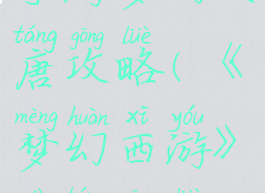 táng gōng lüè
唐攻略(《
mèng huàn xī yóu
梦幻西游》